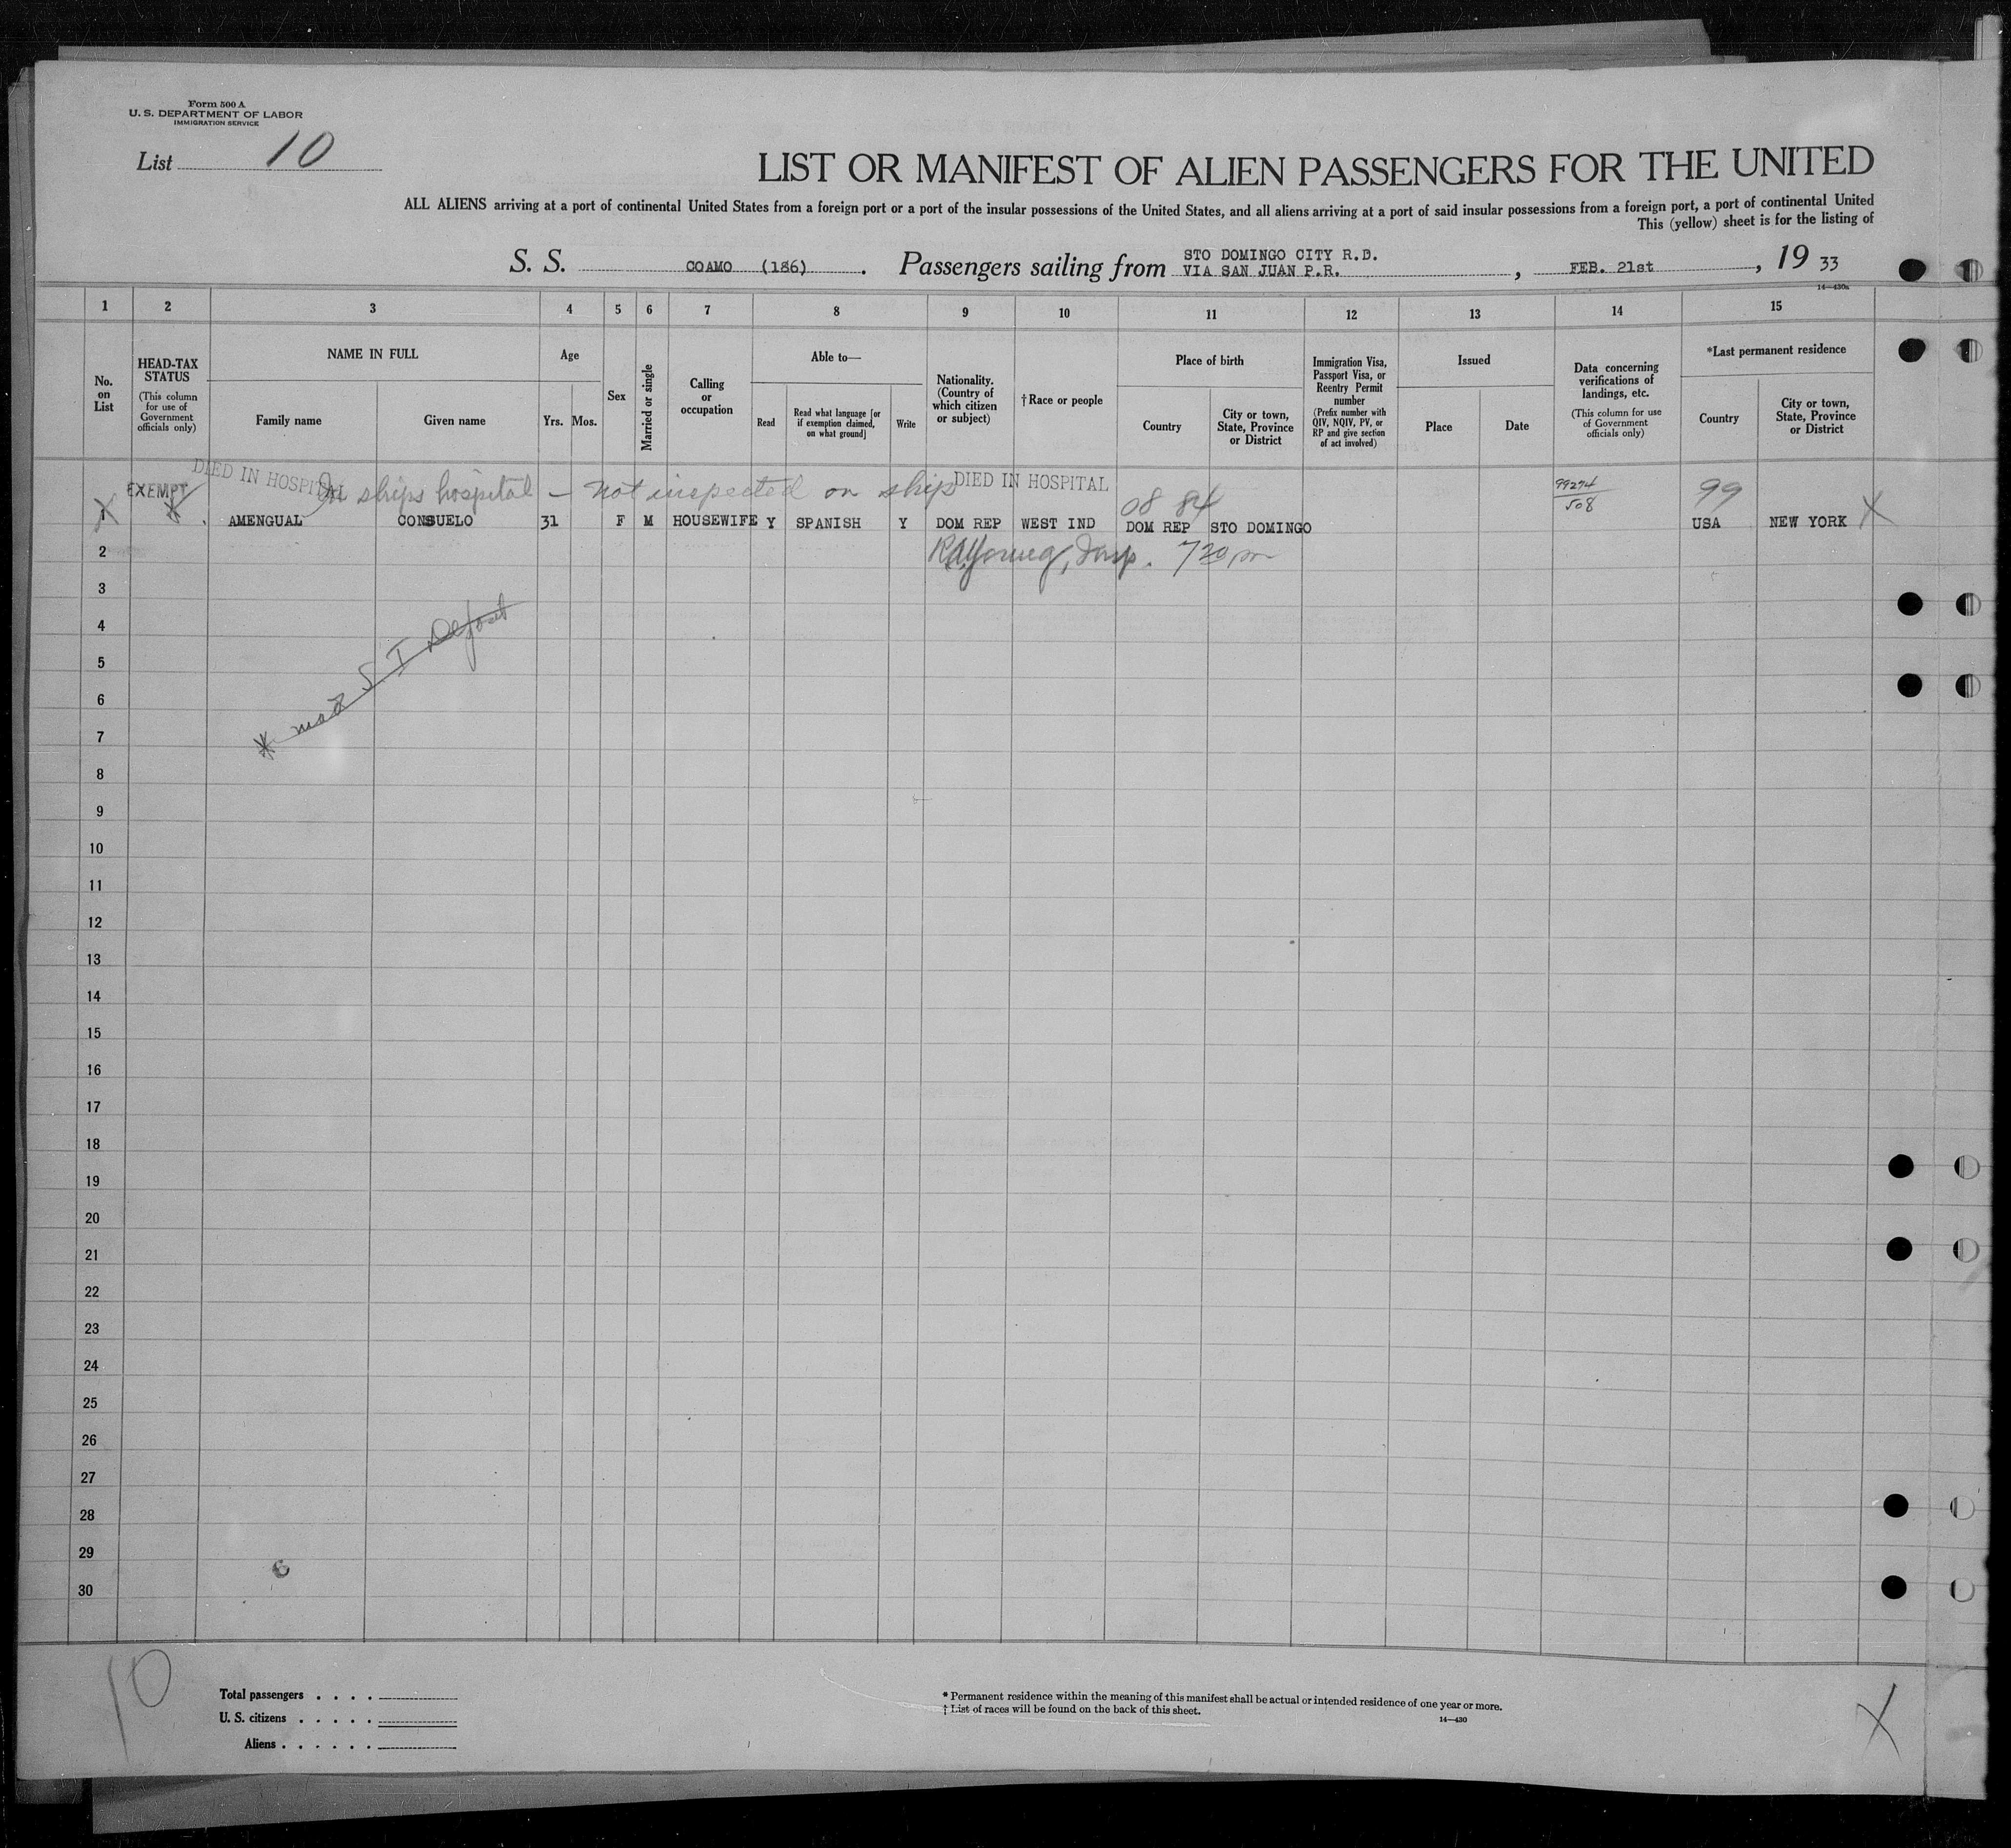 Form 500 A
U. S. DEPARTMENT OF LABOR
IMMIGRATION SERVICE
List 10
LIST OR MANIFEST OF ALIEN PASSENGERS FOR THE UNITED
ALL ALIENS arriving at a port of continental United States from a foreign port or a port of the insular possessions of the United States, and all aliens arriving at a port of said insular possessions from a foreign port, a port of continental United
This (yellow) sheet is for the listing of
S. S. COAMO (186) . Passengers sailing from STO DOMINGO CITY R.D. VIA SAN JUAN P.R. , FEB. 21st , 19 33
14—430a
1 2 3 4 5 6 7 8 9 10 11 12 13 14 15
No. on List
HEAD-TAX STATUS
(This column for use of Government officials only)
NAME IN FULL
Family name
Given name
Age
Yrs. Mos.
Sex
Married or single
Calling or occupation
Able to—
Read
Read what language [or if exemption claimed, on what ground]
Write
Nationality. (Country of which citizen or subject)
†Race or people
Place of birth
Country
City or town, State, Province or District
Immigration Visa, Passport Visa, or Reentry Permit number
(Prefix number with QIV, NQIV, PV, or RP and give section of act involved)
Issued
Place
Date
Data concerning verifications of landings, etc.
(This column for use of Government officials only)
*Last permanent residence
Country
City or town, State, Province or District
DIED IN HOSPITAL
In ships hospital — not inspected on ship
DIED IN HOSPITAL
EXEMPT
08 84
99274
508
99
X 1 AMENGUAL CONSUELO 31 F M HOUSEWIFE Y SPANISH Y DOM REP WEST IND DOM REP STO DOMINGO USA NEW YORK X
Insp. 7 20 pm
2
3
4
5
6
7
8
9
10
11
12
13
14
15
16
17
18
19
20
21
22
23
24
25
26
27
28
29
30
S I Deposit
10
Total passengers . . . .
U. S. citizens . . . . .
Aliens . . . . . .
* Permanent residence within the meaning of this manifest shall be actual or intended residence of one year or more.
† List of races will be found on the back of this sheet.
14—430
X